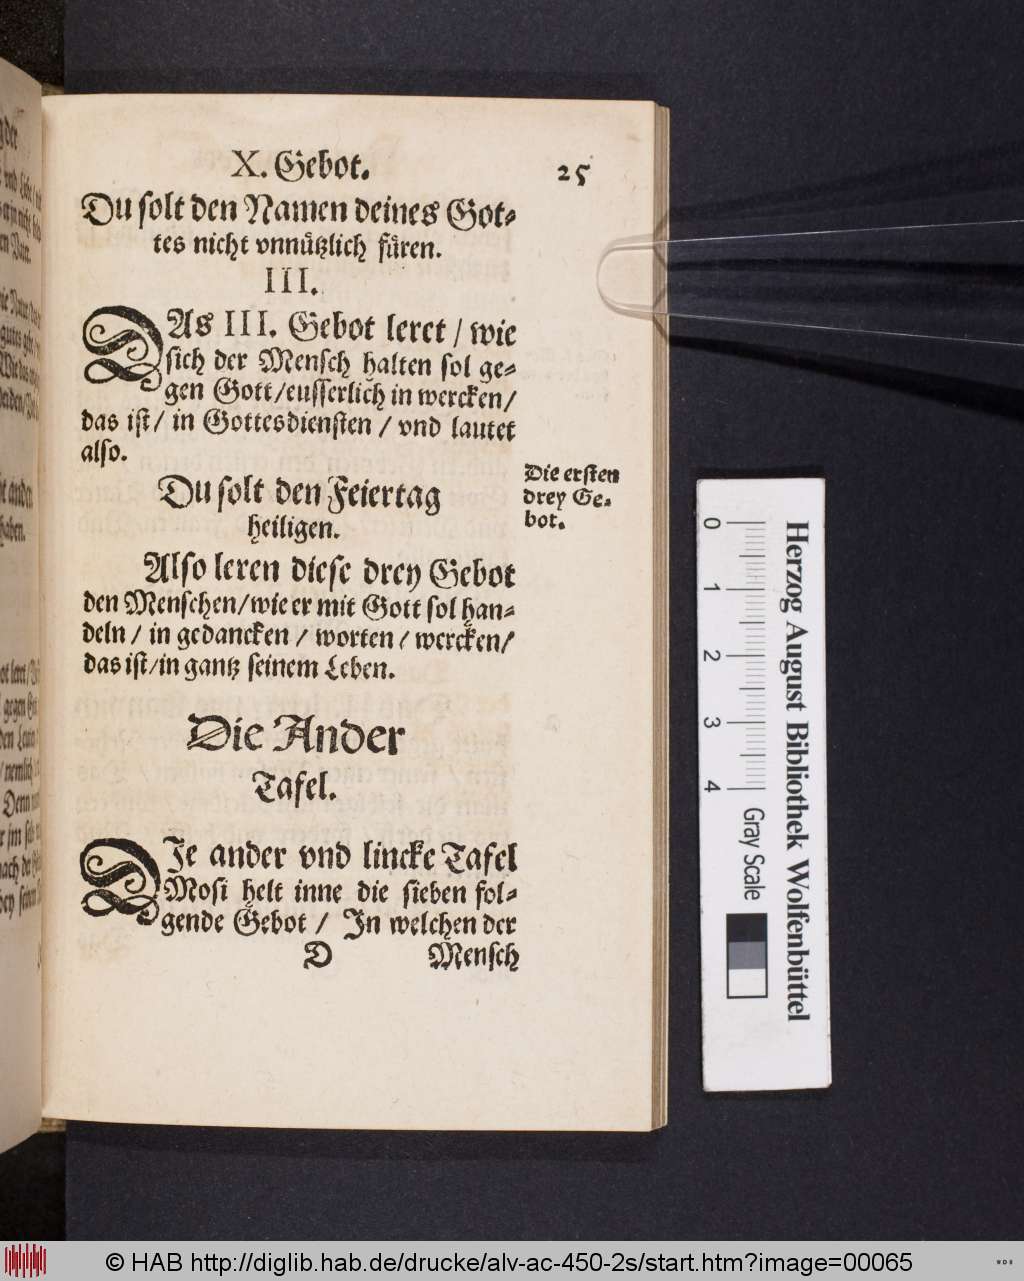 X. Gebot.
25
Du solt den Namen deines Got-
tes nicht vnnützlich füren.
III.
DAs III. Gebot leret / wie
sich der Mensch halten sol ge-
gen Gott / eusserlich in wercken /
das ist / in Gottesdiensten / vnd lautet
also.
Du solt den Feiertag
heiligen.
Die ersten
drey Ge-
bot.
Also leren diese drey Gebot
den Menschen / wie er mit Gott sol han-
deln / in gedancken / worten / wercken /
das ist / in gantz seinem Leben.
Die Ander
Tafel.
DIe ander vnd lincke Tafel
Mosi helt inne die sieben fol-
gende Gebot / In welchen der
D
Mensch
0 1 2 3 4 Gray Scale
Herzog August Bibliothek Wolfenbüttel
© HAB http://diglib.hab.de/drucke/alv-ac-450-2s/start.htm?image=00065